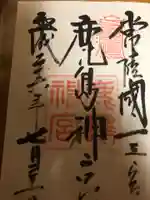 常陸國一之宮
鹿島神宮
平成二十六年七月